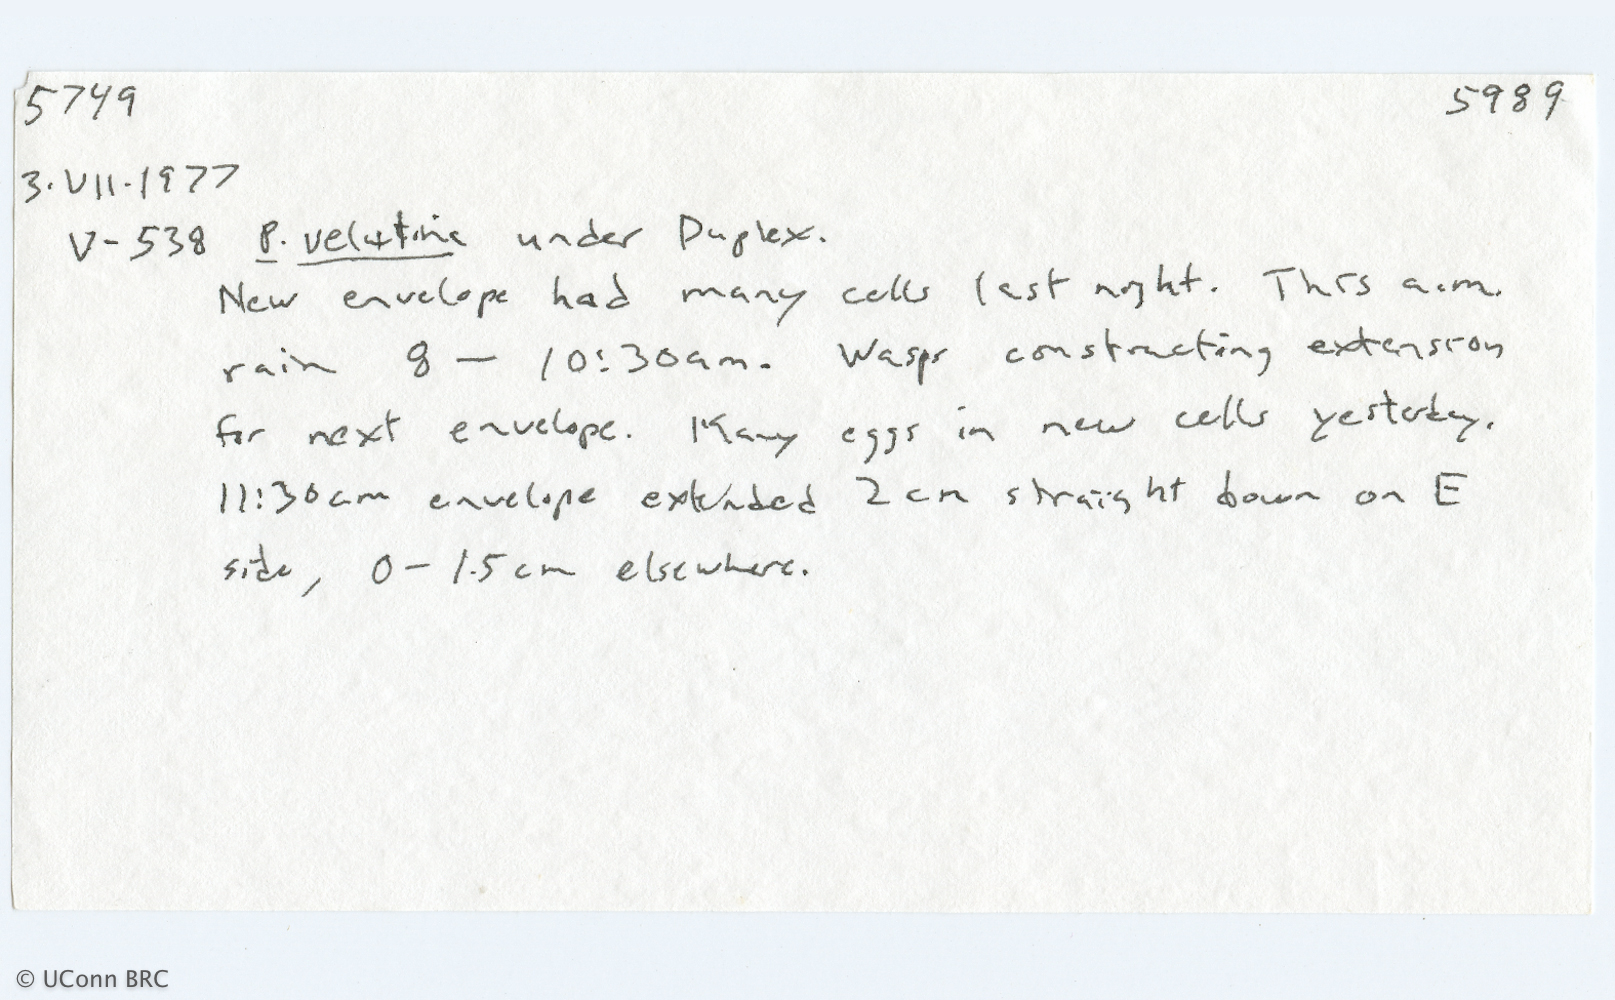 5749 5989
3.VII.1977
V-538 P. velutina under Duplex.
New envelope had many cells last night. This a.m.
rain 8 – 10:30am. Wasps constructing extension
for next envelope. Many eggs in new cells yesterday.
11:30am envelope extended 2cm straight down on E
side, 0 – 1.5cm elsewhere.
© UConn BRC